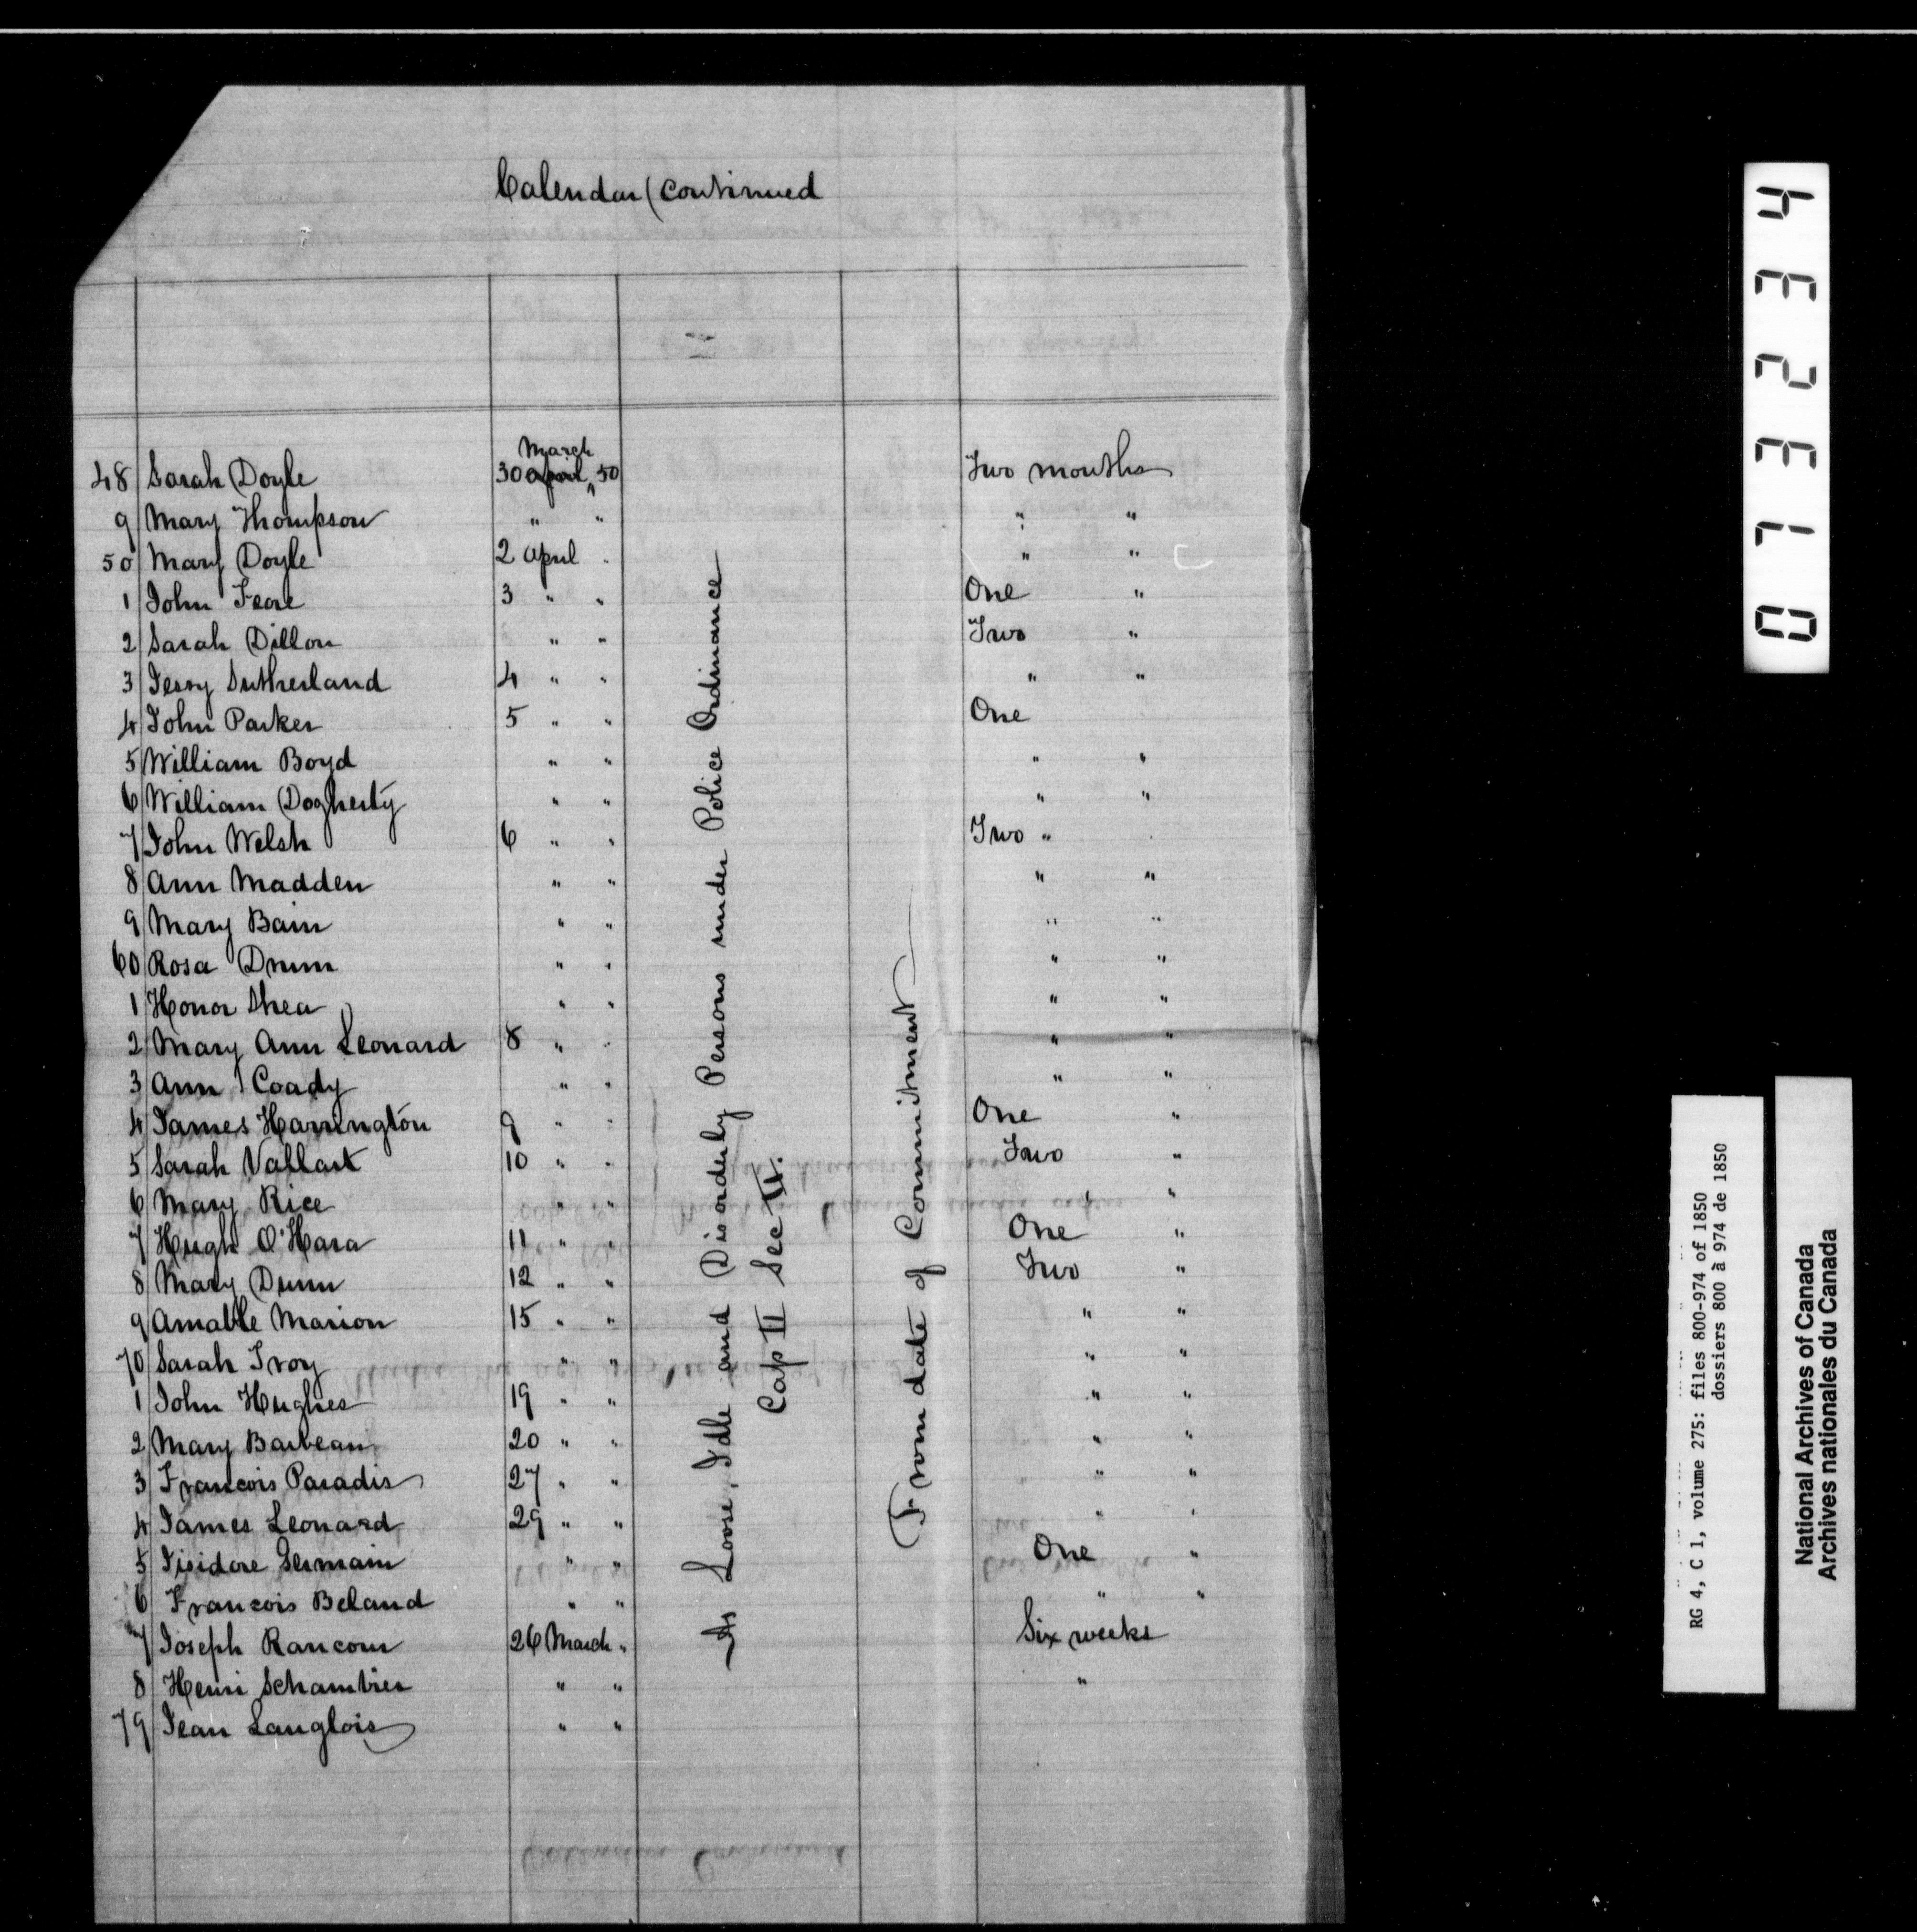 Calendar (continued
March
48 Sarah Doyle 30 april, 50 Two months
9 Mary Thompson " " " "
50 Mary Doyle 2 april " " "
1 John Feore 3 " " One "
2 Sarah Dillon " " Two "
3 Jessy Sutherland 4 " " " "
4 John Parker 5 " " One
5 William Boyd " " " "
6 William Dogherty " " " "
7 John Welsh 6 " " Two "
8 Ann Madden " " " "
9 Mary Bain " " " "
60 Rosa Drum " " " "
1 Honor Shea " " " "
2 Mary Ann Leonard 8 " " " "
3 Ann Coady " " " "
4 James Harrington 9 " " One "
5 Sarah Vallast 10 " " Two "
6 Mary Rice " " " "
7 Hugh O'Hara 11 " " One "
8 Mary Dunn 12 " " Two "
9 Amable Marion 15 " " " "
70 Sarah Ivoy " " " "
1 John Hughes 19 " " " "
2 Mary Barbeau 20 " " " "
3 Francois Paradis 27 " " " "
4 James Leonard 29 " " " "
5 Isidore Germain " " One "
6 Francois Beland " " " "
7 Joseph Rancour 26 March " Six weeks
8 Henri Schambier " " "
79 Jean Langlois " "
As Loose, Idle and Disorderly Persons under Police Ordinance
Cap II Sec II.
From date of Commitment
073234
RG 4, C 1, volume 275: files 800-974 of 1850
dossiers 800 à 974 de 1850
National Archives of Canada
Archives nationales du Canada